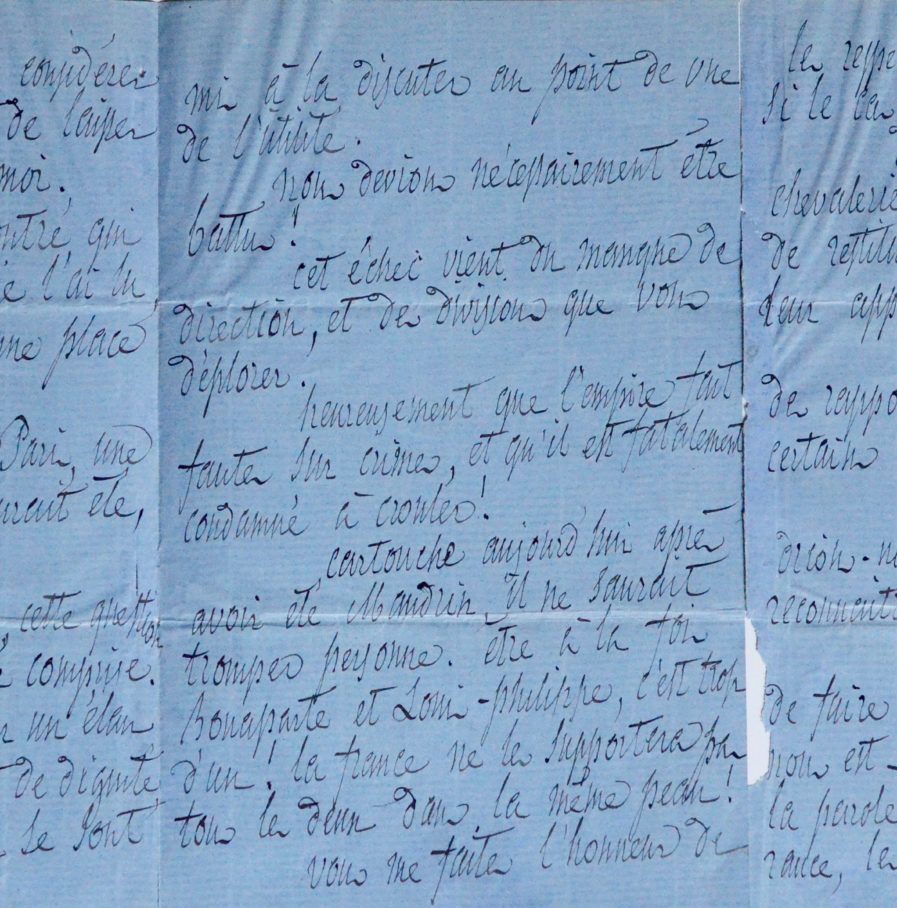 considérer
de laisser
moi.
ontré qui
je l'ai lu,
une place
Paris, une
urait été,
cette question
comprise.
un élan
de dignité
se sont
mis à la discuter au point de vue
de l'utilité.
nous devions nécessairement être
battus !
cet échec vient du manque de
direction, et des divisions que vous
déplorez.
heureusement que l'empire fait
fautes sur crimes, et qu'il est fatalement
condamné à crouler !
cartouche aujourd'hui après
avoir été Mandrin, il ne saurait
tromper personne. être à la fois
bonaparte et Louis-philippe, c'est trop
d'un ! la france ne les supportera pas
tous les deux dans la même peau !
vous me faites l'honneur de
les respe
si le cas
chevalerie
de restitu
leur app
des rappo
certains
reconnaitr
de faire
nous est -
la parole
rance, les